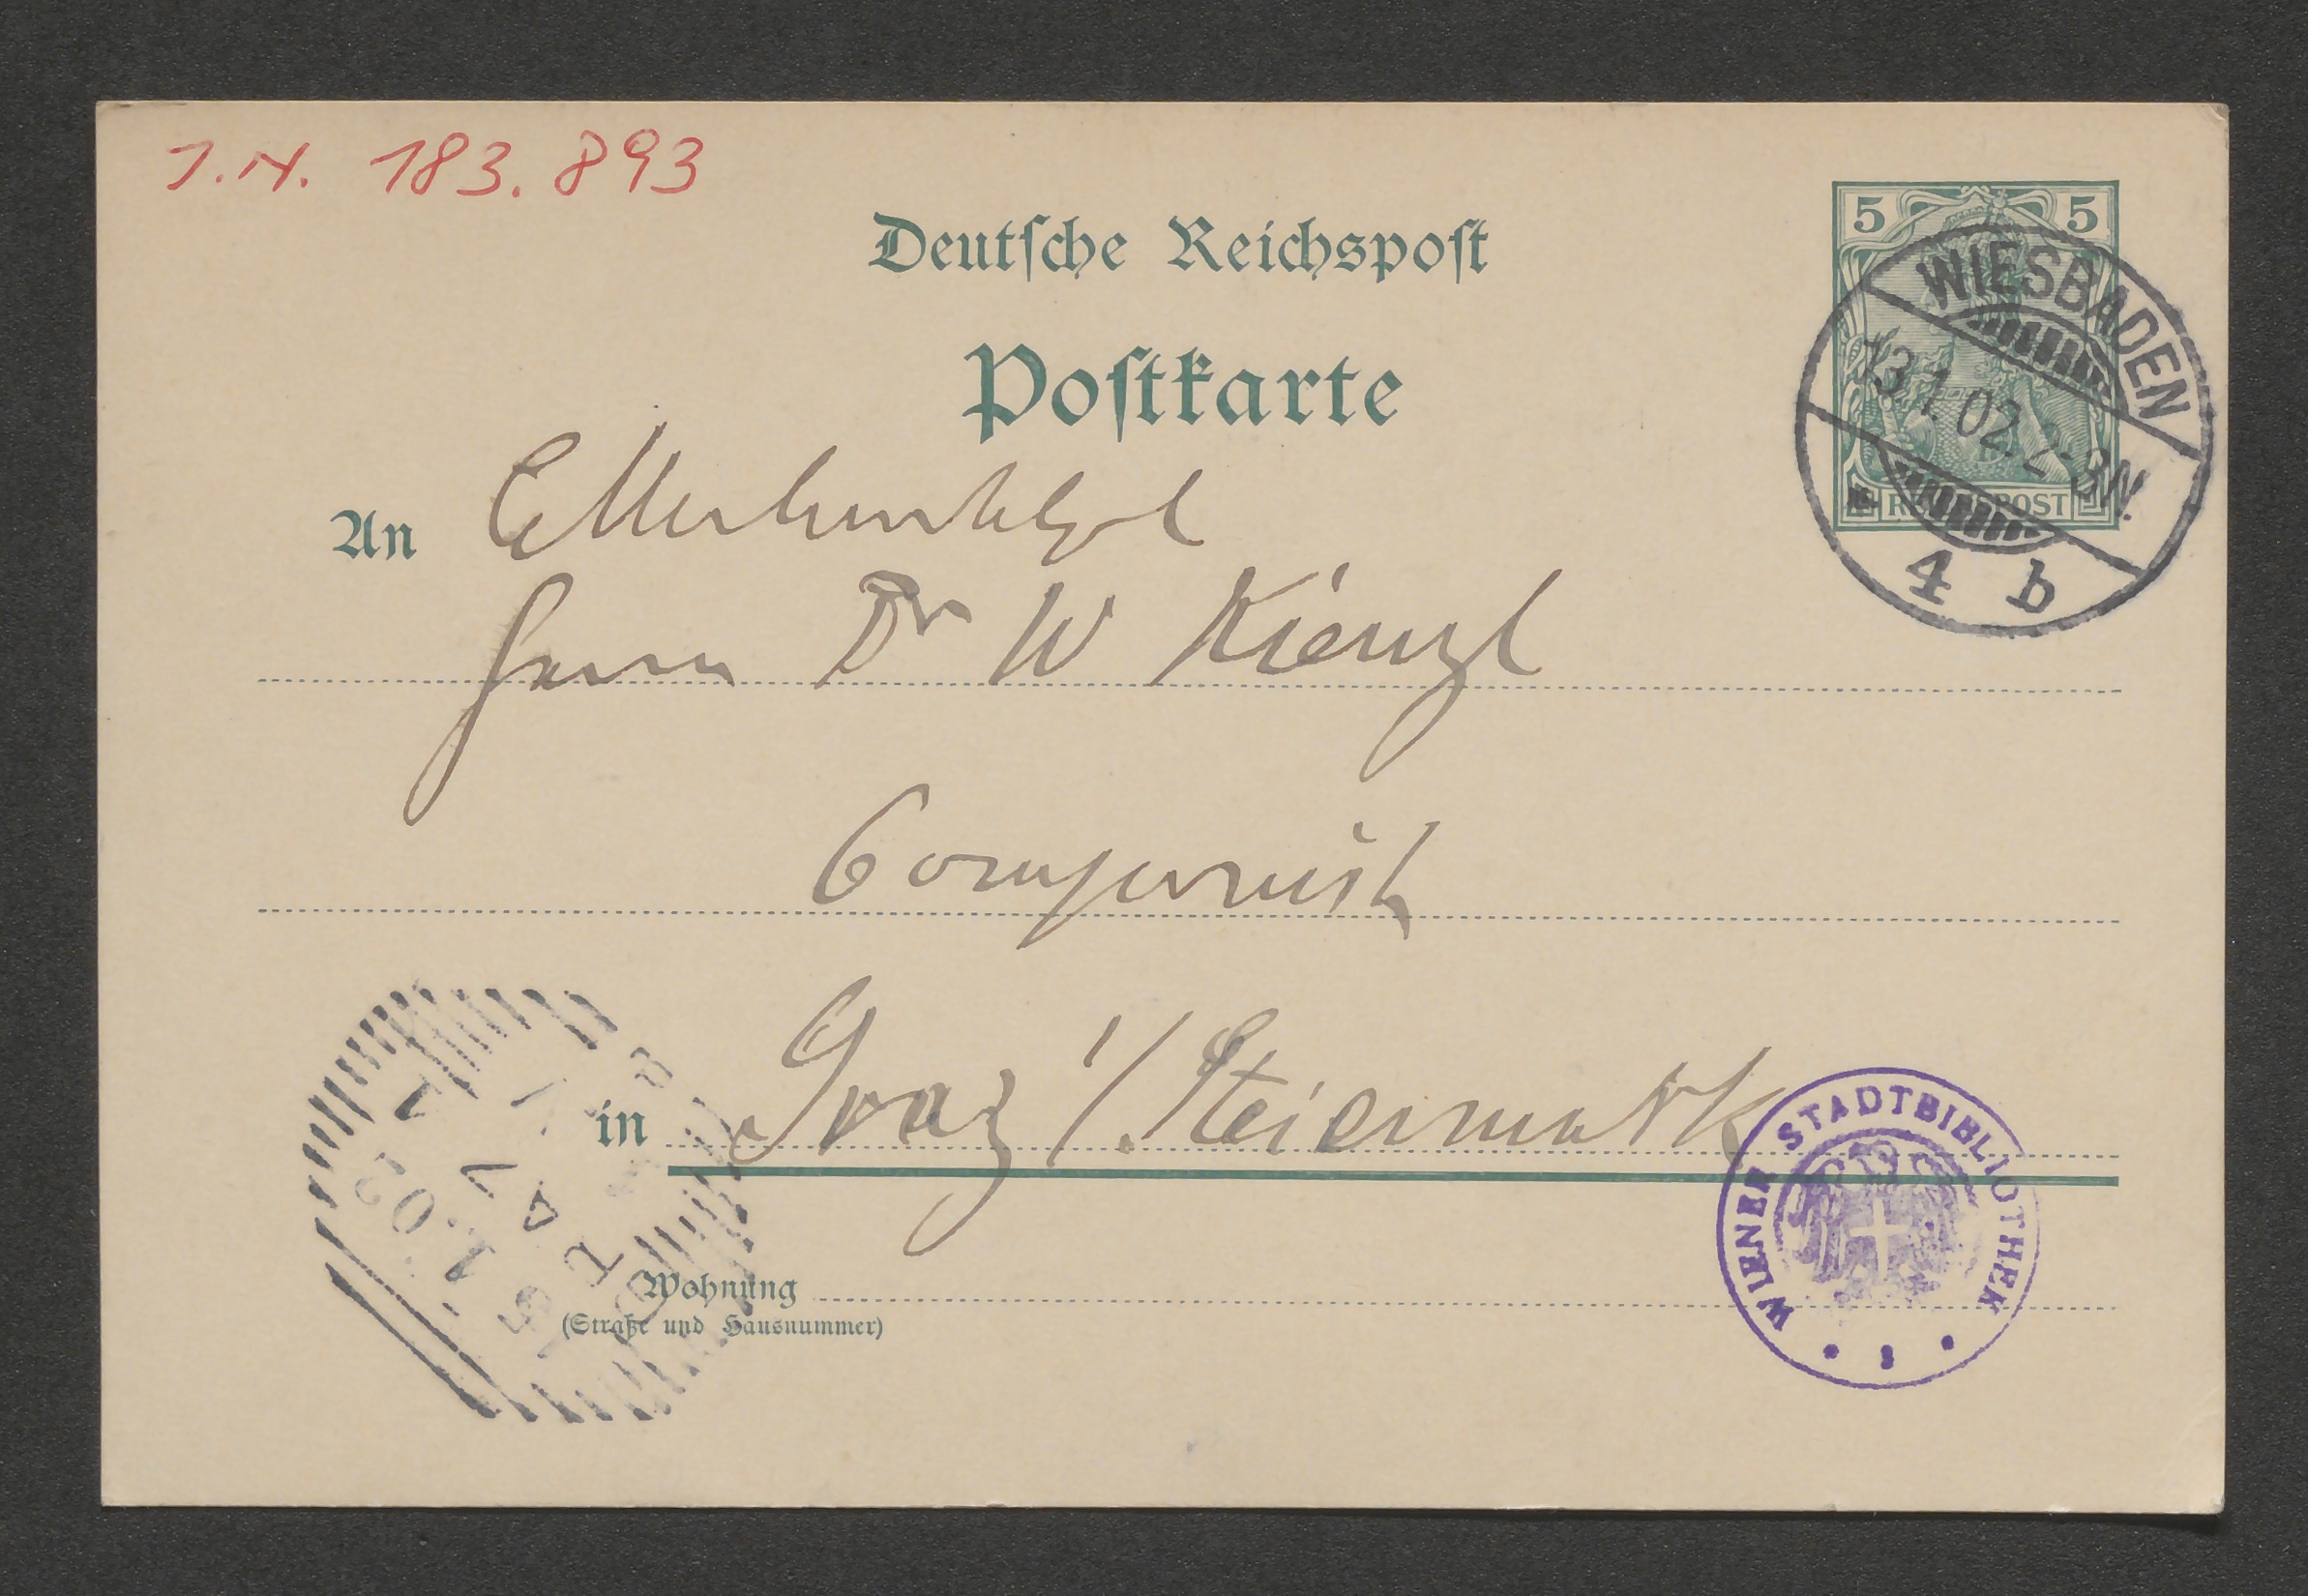 J.N. 183.893
Deutsche Reichspost
Postkarte
5 5
REICHSPOST
WIESBADEN
13.1.02. 2-3N.
4 b
An
Herrn Dr W Kienzl
Componist
in Graz i/. Steiermark
WIENER STADTBIBLIOTHEK
Wohnung
(Straße und Hausnummer)